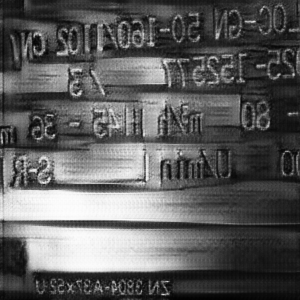 OC-GN 50-160/1102
025- 152577 / 3
80 m³/h H45 - 36 m
U/min S-R
ZN 3804-A37x52 U